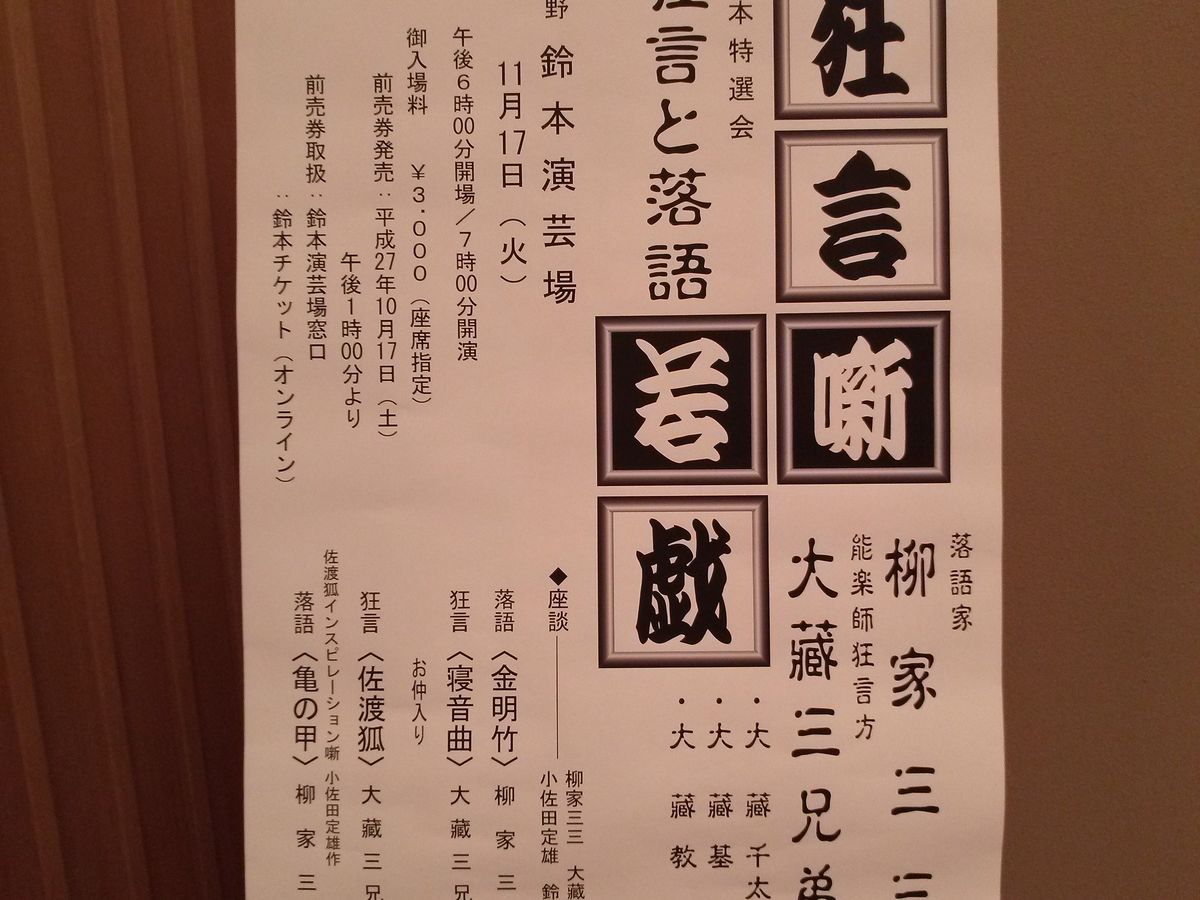 狂言噺
若戯
落語家
柳家三三
能楽師狂言方
大藏三兄弟
・大藏千太
・大藏基
・大藏教
本特選会
狂言と落語
野 鈴本演芸場
11月17日(火)
午後6時00分開場/7時00分開演
御入場料 ¥3.000(座席指定)
前売券発売:平成27年10月17日(土)
午後1時00分より
前売券取扱:鈴本演芸場窓口
:鈴本チケット(オンライン)
◆座談―― 柳家三三 大藏
小佐田定雄 鈴
落語〈金明竹〉柳家三
狂言〈寝音曲〉大藏三兄
お仲入り
狂言〈佐渡狐〉大藏三兄
佐渡狐インスピレーション噺 小佐田定雄作
落語〈亀の甲〉柳家三